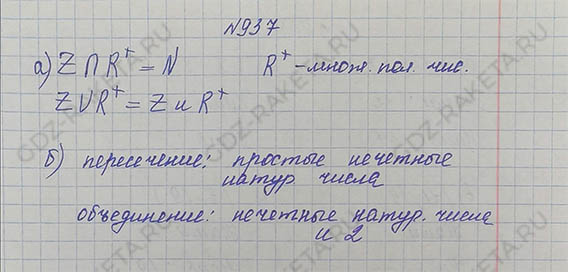 №937
а) Z ∩ R⁺ = N R⁺ - множ. пол. чис.
Z U R⁺ = Z и R⁺
б) пересечение: простые нечетные
натур. числа
объединение: нечетные натур. числа
и 2
GDZ-RAKETA.RU